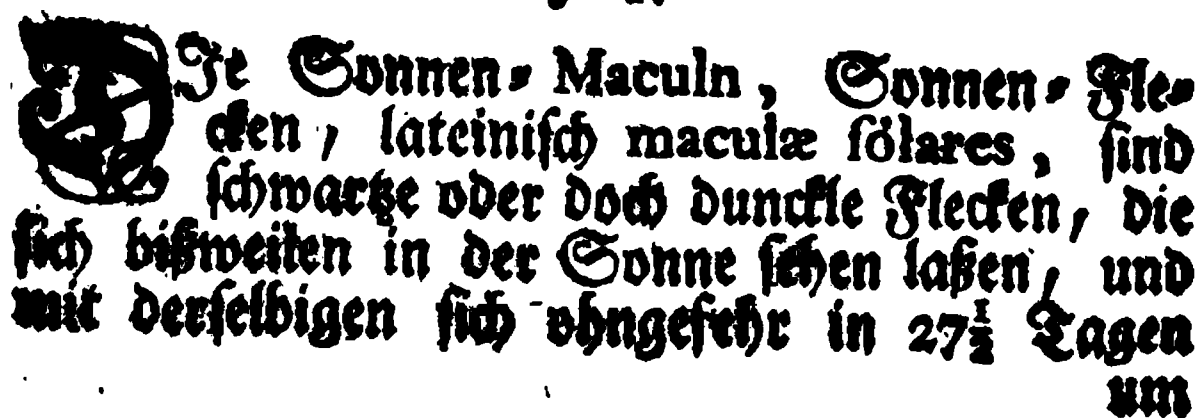 DIe Sonnen-Maculn, Sonnen-Fle-
cken, lateiniſch maculæ ſolares, ſind
ſchwartze oder doch dunckle Flecken, die
ſich bißweilen in der Sonne ſehen laßen, und
mit derſelbigen ſich ohngefehr in 27½ Tagen
um